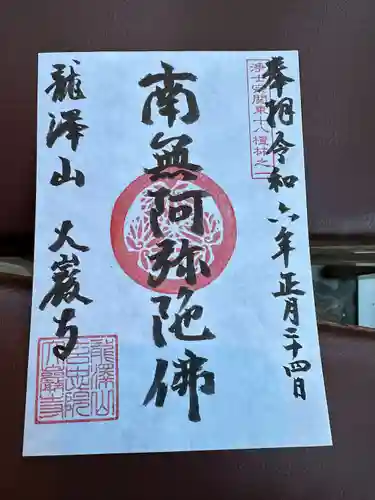 奉拝令和六年正月二十四日
浄土宗関東十八檀林之一
南無阿弥陀佛
龍澤山 大巖寺
龍澤山
大巖寺